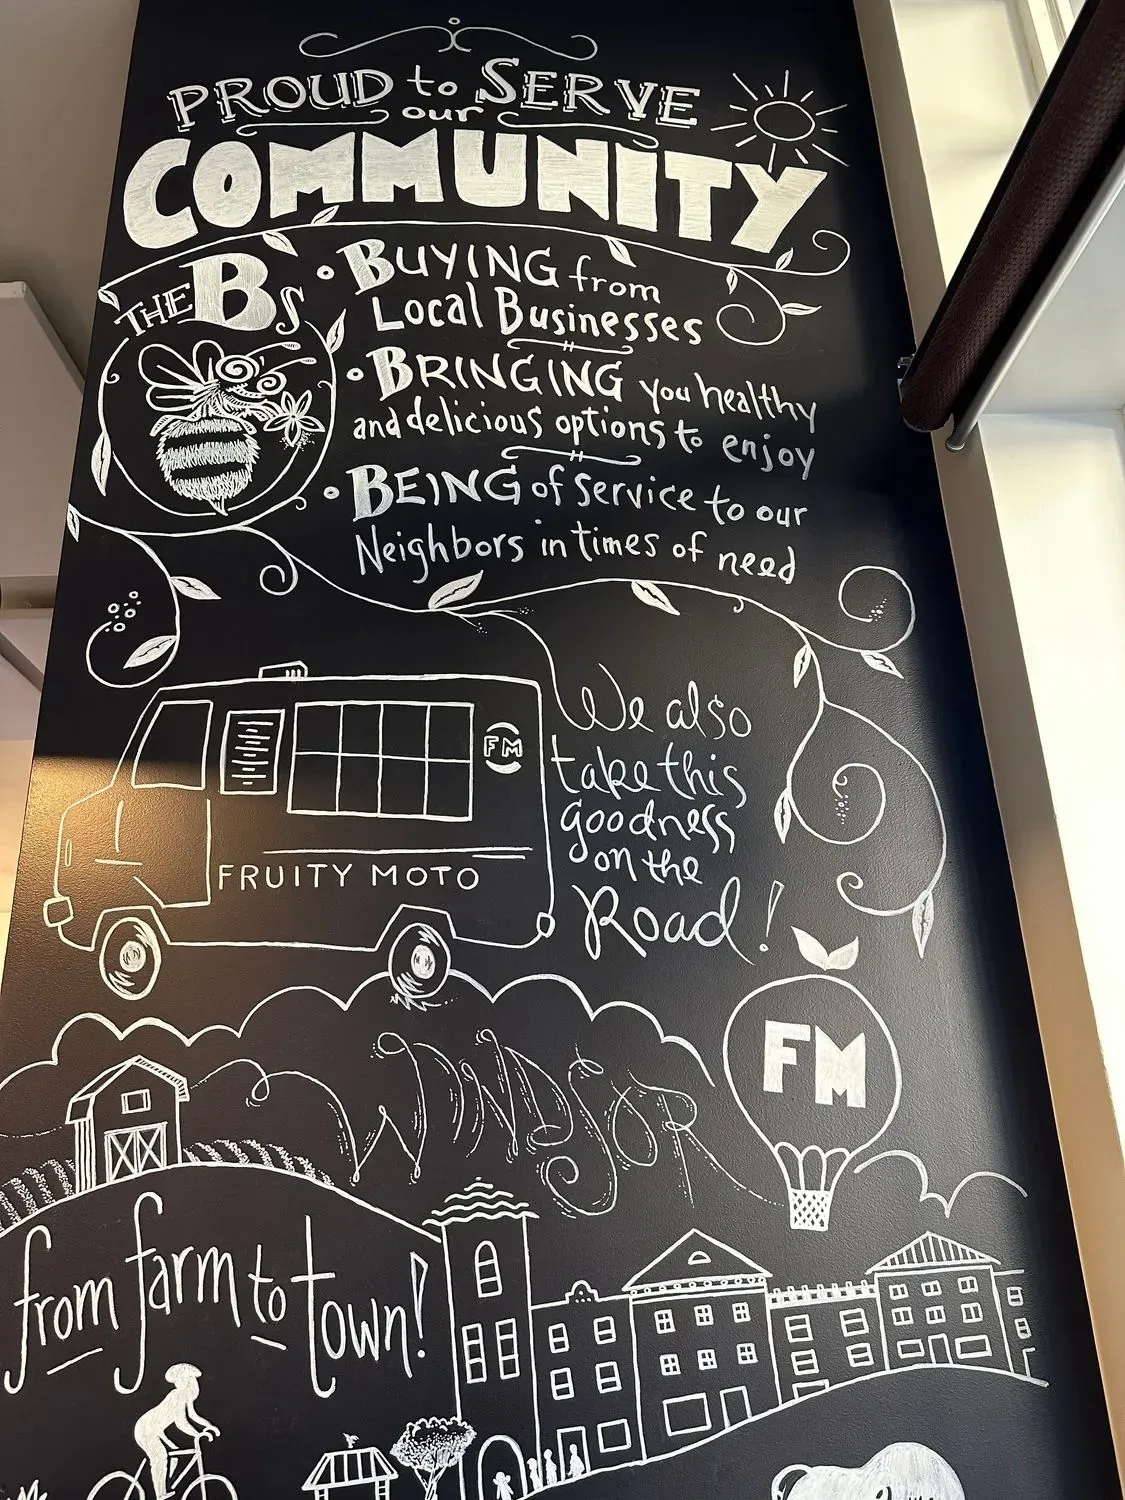 PROUD to SERVE
our
COMMUNITY
THE Bs
• BUYING from
Local Businesses
• BRINGING you healthy
and delicious options to enjoy
• BEING of service to our
Neighbors in times of need
FM
FRUITY MOTO
We also
take this
goodness
on the
Road!
FM
WINDSOR
from farm to town!